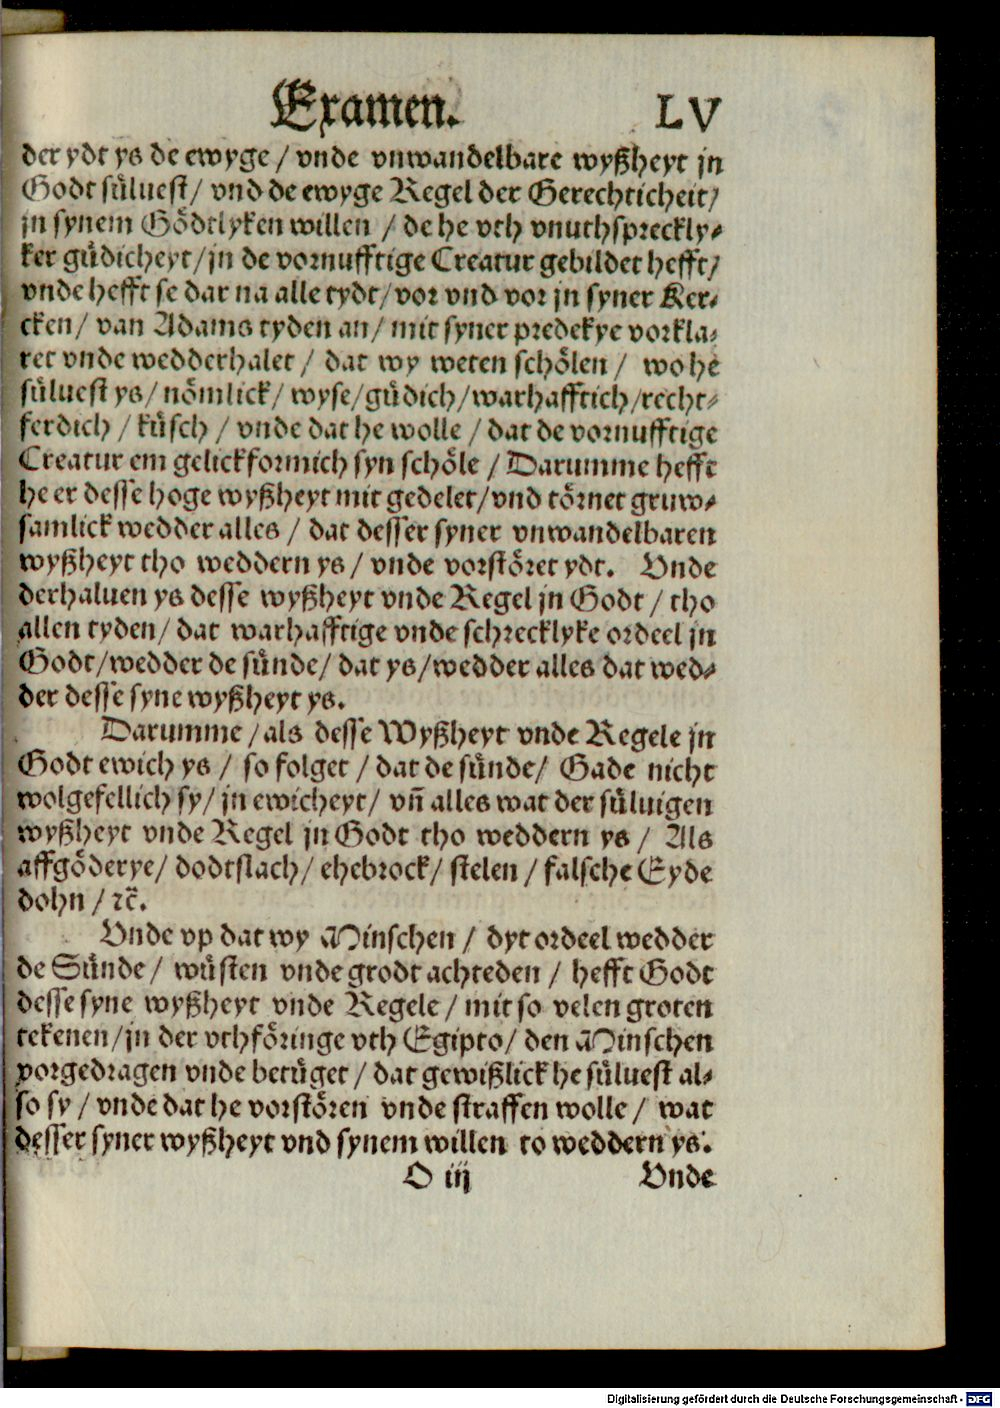 Examen. LV
der ydt ys de ewyge / vnde vnwandelbare wyßheyt jn
Godt suͤluest / vnd de ewyge Regel der Gerechticheit /
jn synem Goͤdtlyken willen / de he vth vnuthspreckly⸗
ker guͤdicheyt / jn de vornufftige Creatur gebildet hefft /
vnde hefft se dar na alle tydt / vor vnd vor jn syner Ker⸗
cken / van Adams tyden an / mit syner predekye vorkla⸗
ret vnde wedderhalet / dat wy weten schoͤlen / wo he
suͤluest ys / noͤmlick / wyse / guͤdich / warhafftich / recht⸗
ferdich / kuͤsch / vnde dat he wolle / dat de vornufftige
Creatur em gelickformich syn schoͤle / Darumme hefft
he er desse hoge wyßheyt mit gedelet / vnd toͤrnet gruw⸗
samlick wedder alles / dat desser syner vnwandelbaren
wyßheyt tho weddern ys / vnde vorstoͤret ydt. Vnde
derhaluen ys desse wyßheyt vnde Regel jn Godt / tho
allen tyden / dat warhafftige vnde schrecklyke ordeel jn
Godt / wedder de suͤnde / dat ys / wedder alles dat wed⸗
der desse syne wyßheyt ys.
Darumme / als desse Wyßheyt vnde Regele jn
Godt ewich ys / so folget / dat de suͤnde / Gade nicht
wolgefellich sy / jn ewicheyt / vñ alles wat der suͤluigen
wyßheyt vnde Regel jn Godt tho weddern ys / Als
affgoͤderye / dodtslach / ehebrock / stelen / falsche Eyde
dohn / ꝛc̃.
Vnde vp dat wy Minschen / dyt ordeel wedder
de Suͤnde / wuͤsten vnde grodt achteden / hefft Godt
desse syne wyßheyt vnde Regele / mit so velen groten
tekenen / jn der vthfoͤringe vth Egipto / den Minschen
vorgedragen vnde betuͤget / dat gewißlick he suͤluest al⸗
so sy / vnde dat he vorstoͤren vnde straffen wolle / wat
desser syner wyßheyt vnd synem willen to weddern ys.
O iij Vnde
Digitalisierung gefördert durch die Deutsche Forschungsgemeinschaft - DFG